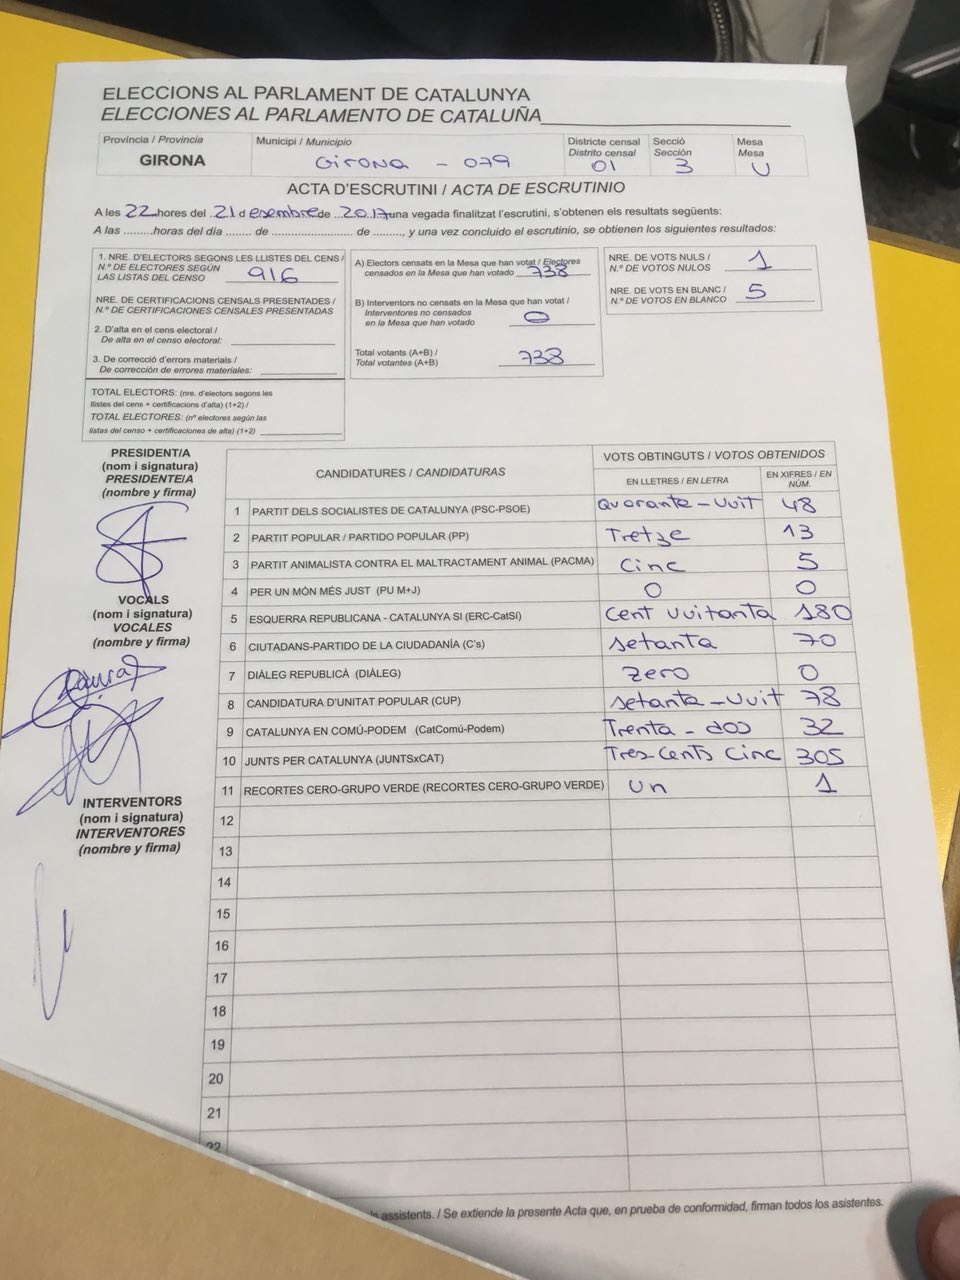 ELECCIONS AL PARLAMENT DE CATALUNYA
ELECCIONES AL PARLAMENTO DE CATALUÑA
Província / Provincia Municipi / Municipio Districte censal Secció Mesa
Distrito censal Sección Mesa
GIRONA Girona - 079 01 3 U
ACTA D'ESCRUTINI / ACTA DE ESCRUTINIO
A les 22 hores del 21 d esembre de 2017 una vegada finalitzat l'escrutini, s'obtenen els resultats següents:
A las ......... horas del día ........ de ......................... de ........., y una vez concluido el escrutinio, se obtienen los siguientes resultados:
1. NRE. D'ELECTORS SEGONS LES LLISTES DEL CENS /
N.º DE ELECTORES SEGÚN
LAS LISTAS DEL CENSO 916
NRE. DE CERTIFICACIONS CENSALS PRESENTADES /
N.º DE CERTIFICACIONES CENSALES PRESENTADAS
2. D'alta en el cens electoral /
De alta en el censo electoral:
3. De correcció d'errors materials /
De corrección de errores materiales:
TOTAL ELECTORS: (nre. d'electors segons les
llistes del cens + certificacions d'alta) (1+2) /
TOTAL ELECTORES: (nº electores según las
listas del censo + certificaciones de alta) (1+2)
A) Electors censats en la Mesa que han votat / Electores
censados en la Mesa que han votado 738
B) Interventors no censats en la Mesa que han votat /
Interventores no censados
en la Mesa que han votado 0
Total votants (A+B) /
Total votantes (A+B) 738
NRE. DE VOTS NULS /
N.º DE VOTOS NULOS 1
NRE. DE VOTS EN BLANC /
N.º DE VOTOS EN BLANCO 5
PRESIDENT/A
(nom i signatura)
PRESIDENTE/A
(nombre y firma)
VOCALS
(nom i signatura)
VOCALES
(nombre y firma)
INTERVENTORS
(nom i signatura)
INTERVENTORES
(nombre y firma)
CANDIDATURES / CANDIDATURAS VOTS OBTINGUTS / VOTOS OBTENIDOS
EN LLETRES / EN LETRA EN XIFRES / EN NÚM.
1 PARTIT DELS SOCIALISTES DE CATALUNYA (PSC-PSOE) Quaranta-Vuit 48
2 PARTIT POPULAR / PARTIDO POPULAR (PP) Tretze 13
3 PARTIT ANIMALISTA CONTRA EL MALTRACTAMENT ANIMAL (PACMA) Cinc 5
4 PER UN MÓN MÉS JUST (PU M+J) 0 0
5 ESQUERRA REPUBLICANA - CATALUNYA SI (ERC-CatSí) Cent Vuitanta 180
6 CIUTADANS-PARTIDO DE LA CIUDADANÍA (C's) Setanta 70
7 DIÀLEG REPUBLICÀ (DIÀLEG) Zero 0
8 CANDIDATURA D'UNITAT POPULAR (CUP) Setanta-Vuit 78
9 CATALUNYA EN COMÚ-PODEM (CatComú-Podem) Trenta-dos 32
10 JUNTS PER CATALUNYA (JUNTSxCAT) Tres-Cents Cinc 305
11 RECORTES CERO-GRUPO VERDE (RECORTES CERO-GRUPO VERDE) Un 1
12
13
14
15
16
17
18
19
20
21
22
assistents. / Se extiende la presente Acta que, en prueba de conformidad, firman todos los asistentes.